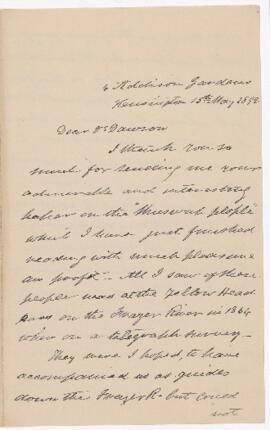 6 Addison Gardens
Kensington 15th May 1892
Dear Dr Dawson
I thank you so
much for sending me your
admirable and interesting
paper on the "Shuswap people"
which I have just finished
reading with much pleasure
and profit - All I saw of these
people was at the Yellow Head
pass on the Frazer River in 1864
when on a telegraph survey -
They were I hoped, to have
accompanied us as guides
down the Frazer R. but could
not